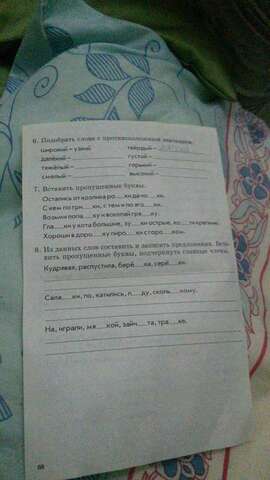 6. Подобрать слова с противоположным значением.
широкий – узкий твёрдый –
далёкий – густой –
тяжёлый – горький –
смелый – высокий –
7. Вставить пропущенные буквы.
Остались от козлика ро__ки да но__ки.
С кем по гри__ки, с тем и по яго__ки.
Возьми лопа__ку и вскопай гря__ку.
Гла__ки у кота большие, зу__ки острые, ко__ти крепкие.
Хороши в доро__ку пиро__ки с горо__ком.
8. Из данных слов составить и записать предложения. Вставить пропущенные буквы, подчеркнуть главные члены.
Кудрявая, распустила, берё__ка, серё__ки.
Сала__ки, по, катились, л__ду, сколь__кому.
На, играли, мя__кой, зайч__та, тра__ке.
68